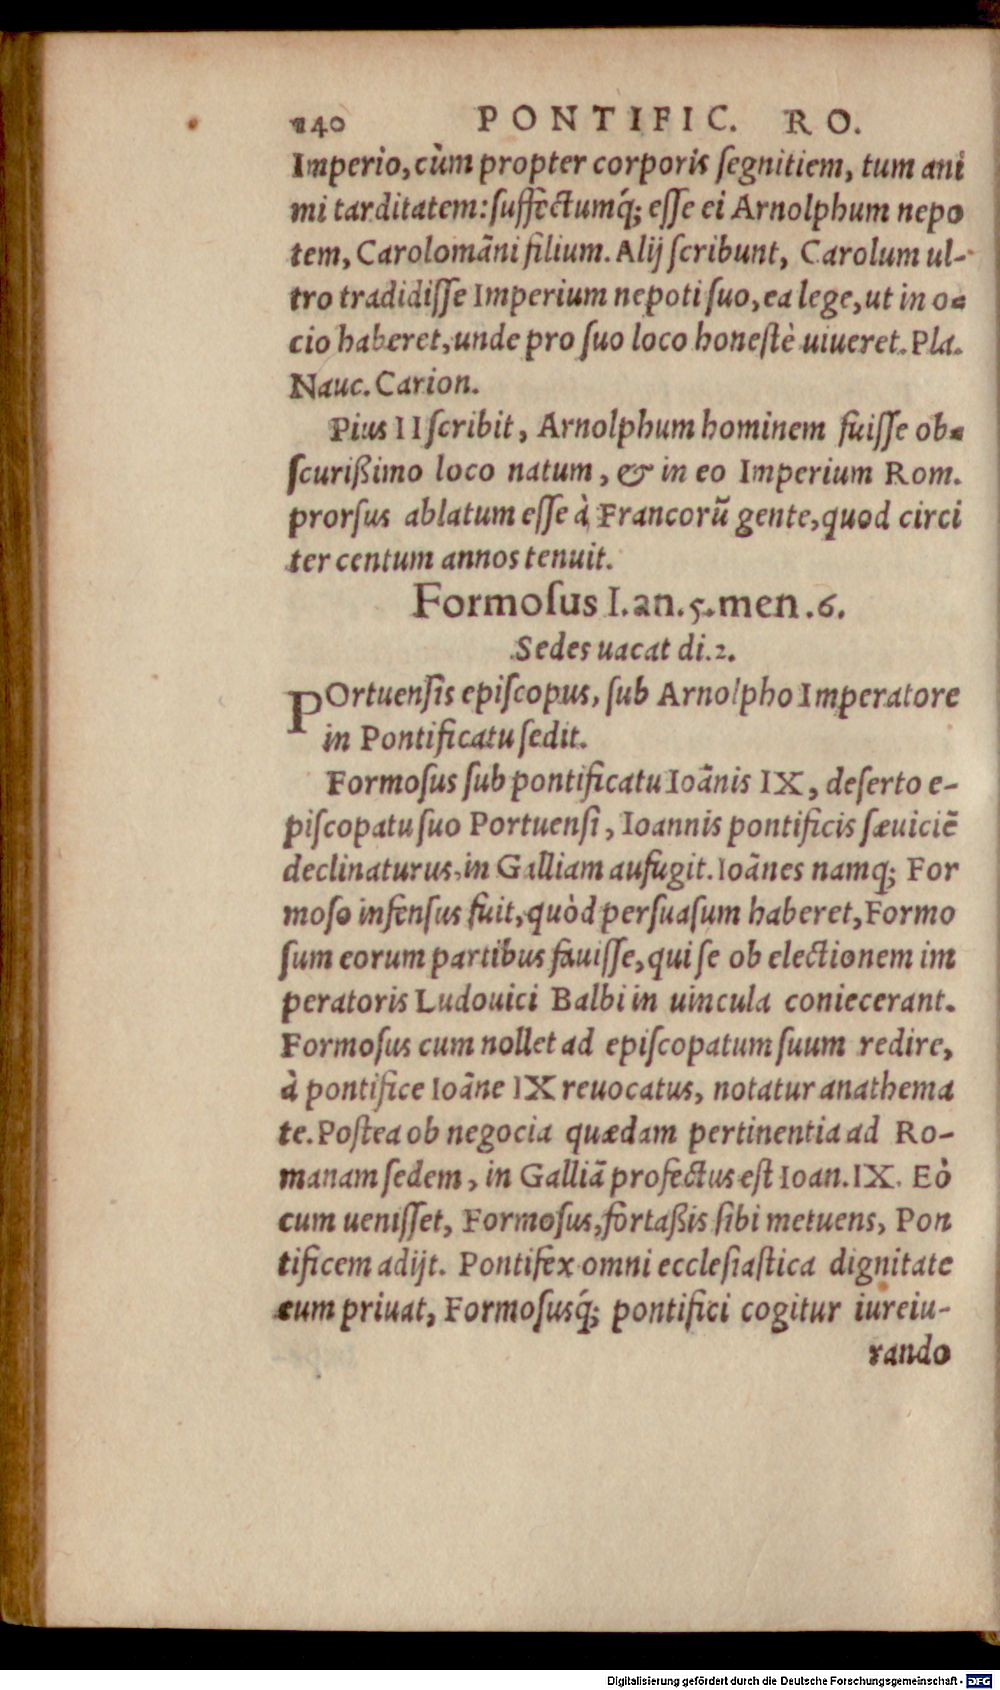 140 PONTIFIC. RO.
Imperio, cùm propter corporis ſegnitiem, tum ani
mi tarditatem: ſuffectumq́; eſſe ei Arnolphum nepo
tem, Carolomãni filium. Alij ſcribunt, Carolum ul-
tro tradidiſſe Imperium nepoti ſuo, ea lege, ut in o-
cio haberet, unde pro ſuo loco honeſtè uiueret. Pla.
Nauc. Carion.
Pius II ſcribit, Arnolphum hominem fuiſſe ob-
ſcurißimo loco natum, & in eo Imperium Rom.
prorſus ablatum eſſe à Francorũ gente, quod circi
ter centum annos tenuit.
Formoſus I. an. 5. men. 6.
Sedes uacat di. 2.
POrtuenſis epiſcopus, ſub Arnolpho Imperatore
in Pontificatu ſedit.
Formoſus ſub pontificatu Ioãnis IX, deſerto e-
piſcopatu ſuo Portuenſi, Ioannis pontificis ſæuiciẽ
declinaturus, in Galliam aufugit. Ioãnes namq; For
moſo infenſus fuit, quòd perſuaſum haberet, Formo
ſum eorum partibus fauiſſe, qui ſe ob electionem im
peratoris Ludouici Balbi in uincula coniecerant.
Formoſus cum nollet ad epiſcopatum ſuum redire,
à pontifice Ioãne IX reuocatus, notatur anathema
te. Poſtea ob negocia quædam pertinentia ad Ro-
manam ſedem, in Galliã profectus eſt Ioan. IX. Eò
cum ueniſſet, Formoſus, fortaßis ſibi metuens, Pon
tificem adijt. Pontifex omni eccleſiaſtica dignitate
eum priuat, Formoſusq́; pontifici cogitur iureiu-
rando
Digitalisierung gefördert durch die Deutsche Forschungsgemeinschaft - DFG